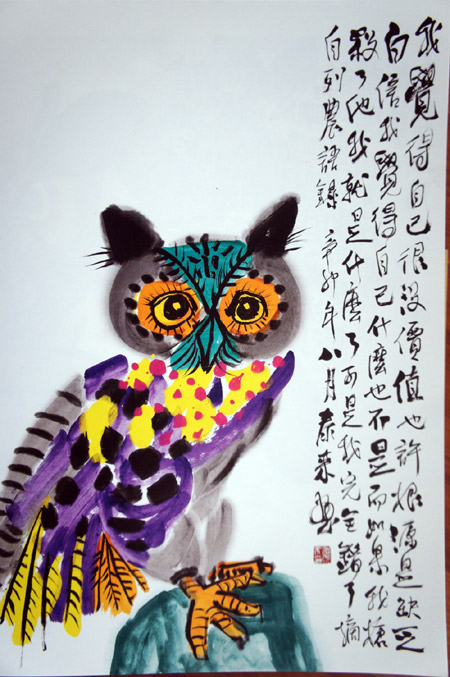 我覺得自己很沒價值也許根源是缺乏
自信我覺得自己什麼也不是而如果我槍
殺了他我就是什麼了可是我完全錯了摘
自列農語錄 辛卯年八月